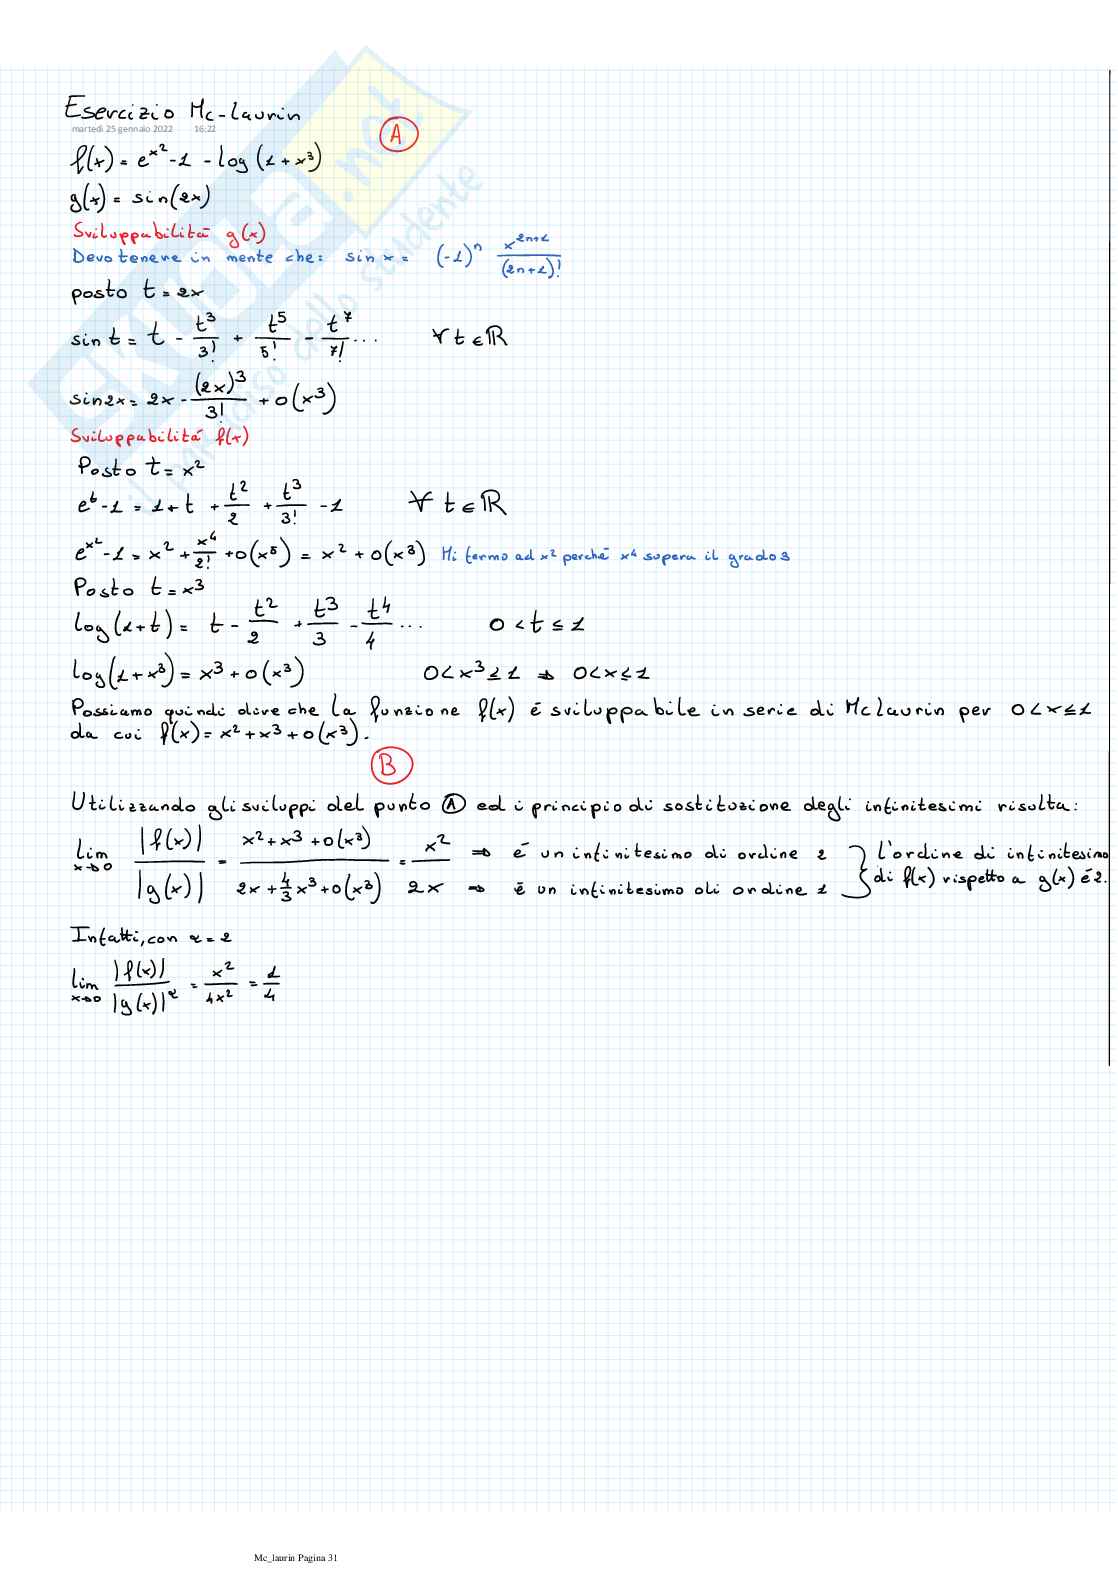 Esercizio Mc-Laurin
martedì 25 gennaio 2022 16:22
A
f(x) = e^{x^2} - 1 - log (1 + x^3)
g(x) = sin(2x)
Sviluppabilitá g(x)
Devo tenere in mente che: sin x = (-1)^n x^{2n+1} / (2n+1)!
posto t = 2x
sin t = t - t^3/3! + t^5/5! - t^7/7! ... ∀ t ∈ ℝ
sin2x = 2x - (2x)^3/3! + o(x^3)
Sviluppabilitá f(x)
Posto t = x^2
e^t - 1 = 1 + t + t^2/2 + t^3/3! - 1 ∀ t ∈ ℝ
e^{x^2} - 1 = x^2 + x^4/2! + o(x^5) = x^2 + o(x^3) Mi fermo ad x^2 perché x^4 supera il grado 3
Posto t = x^3
log(1+t) = t - t^2/2 + t^3/3 - t^4/4 ... 0 < t ≤ 1
log(1+x^3) = x^3 + o(x^3) 0 < x^3 ≤ 1 ⇒ 0 < x ≤ 1
Possiamo quindi dire che la funzione f(x) é sviluppabile in serie di Mclaurin per 0 < x ≤ 1
da cui f(x) = x^2 + x^3 + o(x^3).
B
Utilizzando gli sviluppi del punto A ed i principio di sostituzione degli infinitesimi risulta:
lim x→0 |f(x)| / |g(x)| = x^2 + x^3 + o(x^3) / 2x + 4/3 x^3 + o(x^3) = x^2 / 2x ⇒ é un infinitesimo di ordine 2 ⇒ é un infinitesimo di ordine 1 } l'ordine di infinitesimo di f(x) rispetto a g(x) é 2.
Infatti, con α = 2
lim x→0 |f(x)| / |g(x)|^α = x^2 / 4x^2 = 1/4
Mc_laurin Pagina 31
skuola.net
il paradiso dello studente